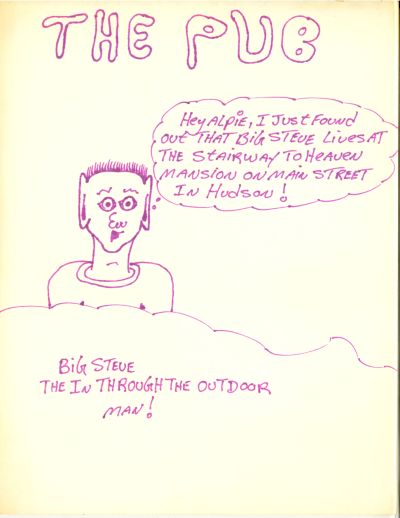 THE PUB
Hey ALPiE, I JUST Found
out THAT BiG STEVE LivesAT
THE STAirwAY To HeAven
MANSION ON MAiN STREET
IN HuDson!
BiG STEVE
THE IN THROUGH THE OUTDOOR
MAN!